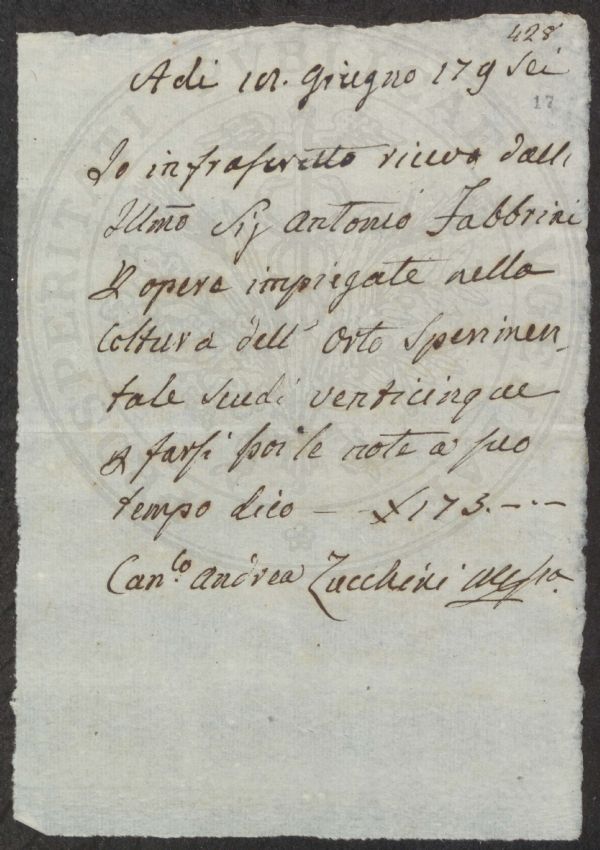 428
Adi 101. Giugno 179 Sei
17
Io infrascritto ricevo dall
Illmõ Sig Antonio Fabbrini
opere impiegate nella
Coltura dell' Orto Sperimen,
tale scudi venticinque
farsi poi le note a suo
tempo dico — 175. — . —
Can.co Andrea Zucchini